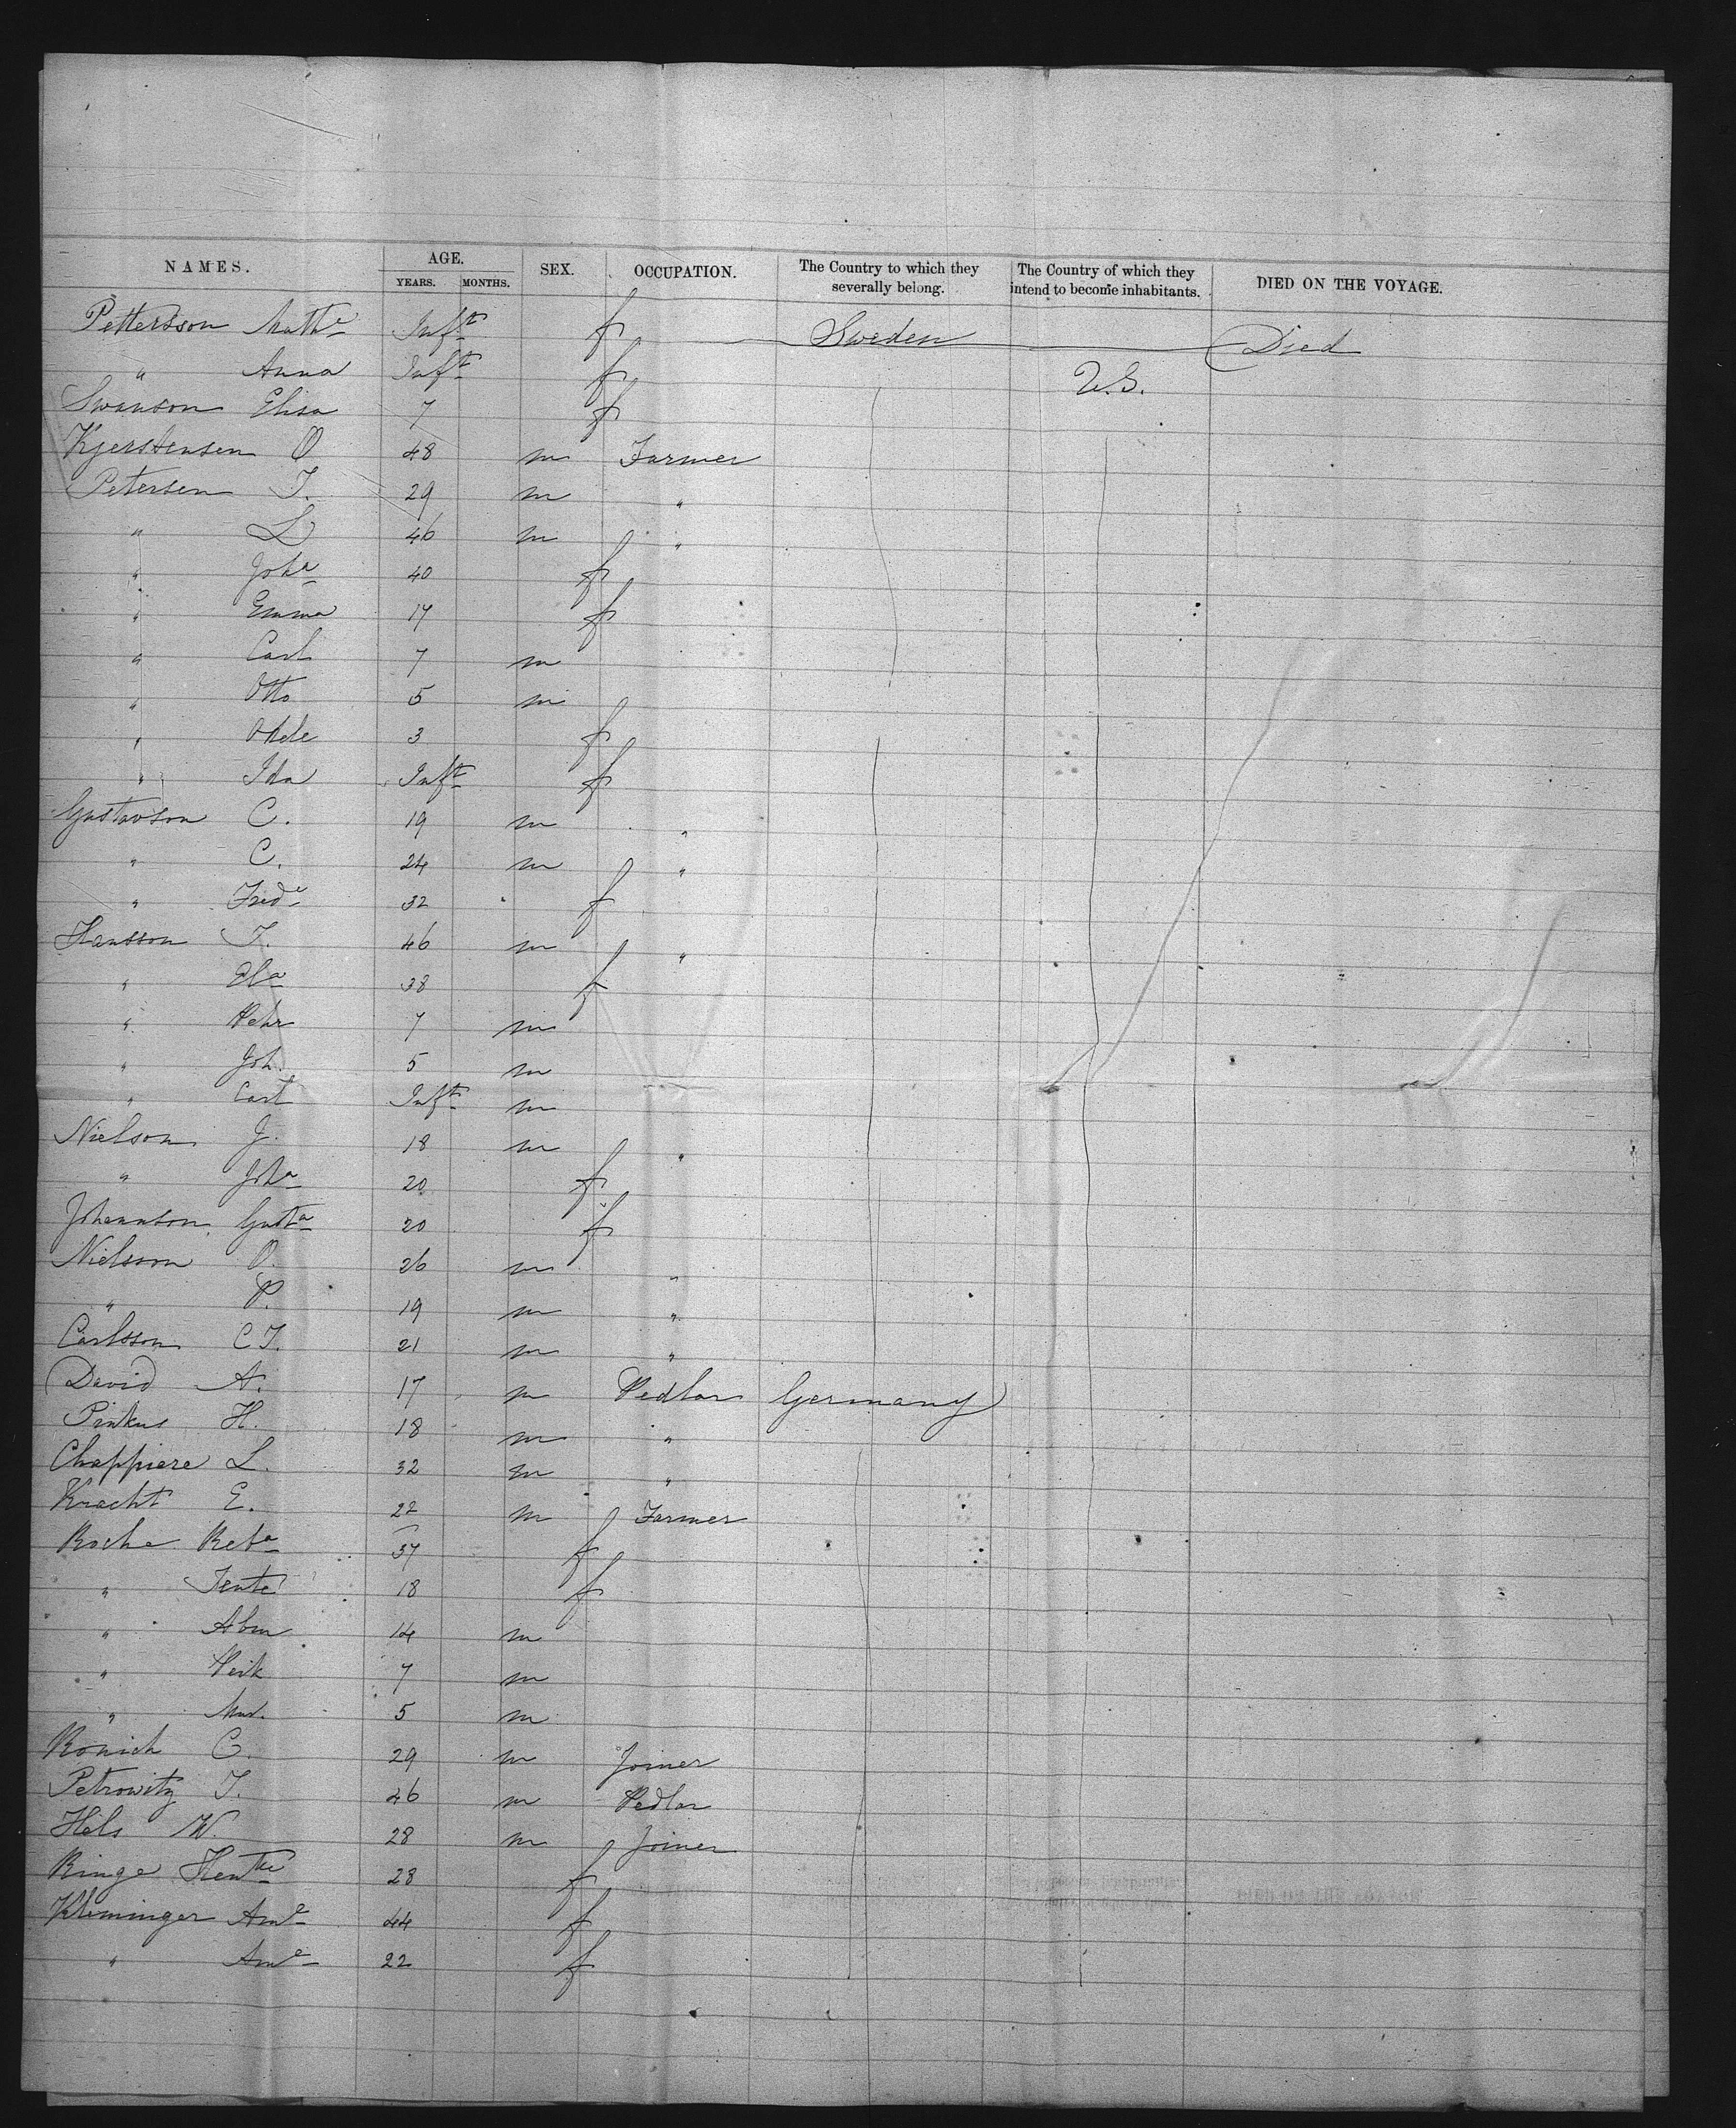 NAMES. AGE. SEX. OCCUPATION. The Country to which they severally belong. The Country of which they intend to become inhabitants. DIED ON THE VOYAGE.
YEARS. MONTHS.
Pettersson Mathe Inft f Sweden Died
" Anna Inft f U.S.
Swanson Elisa 7 f
Kjerstensen O 48 m Farmer
Petersen J. 29 m "
" L 46 m "
" Joha 40 f
" Emma 17 f
" Carl 7 m
" Otto 5 m
" 3 f
" Ida Inft f
Gustavson C. 19 m "
" C. 24 m "
" Fride 32 f
Hansson J. 46 m "
" Ela 38 f
" Pehr 7 m
" Joh. 5 m
" Carl Inft m
Nielson J. 18 m "
" Joha 20 f
Johannson Gusta 20 f
Nielsson O. 26 m "
" P. 19 m "
Carlsson C J. 21 m "
David A. 17 m Pedlar Germany
Pinkus H. 18 m "
Chappiere L. 32 m "
Kracht E. 22 m Farmer
Roche Reba 37 f
" 18 f
" Abm 14 m
" 7 m
" 5 m
Konich C. 29 m Joiner
Petrowitz J. 46 m Pedlar
Hels W. 28 m Joiner
Ringe 28 f
Kleminger Ame 44 f
" Ame 22 f